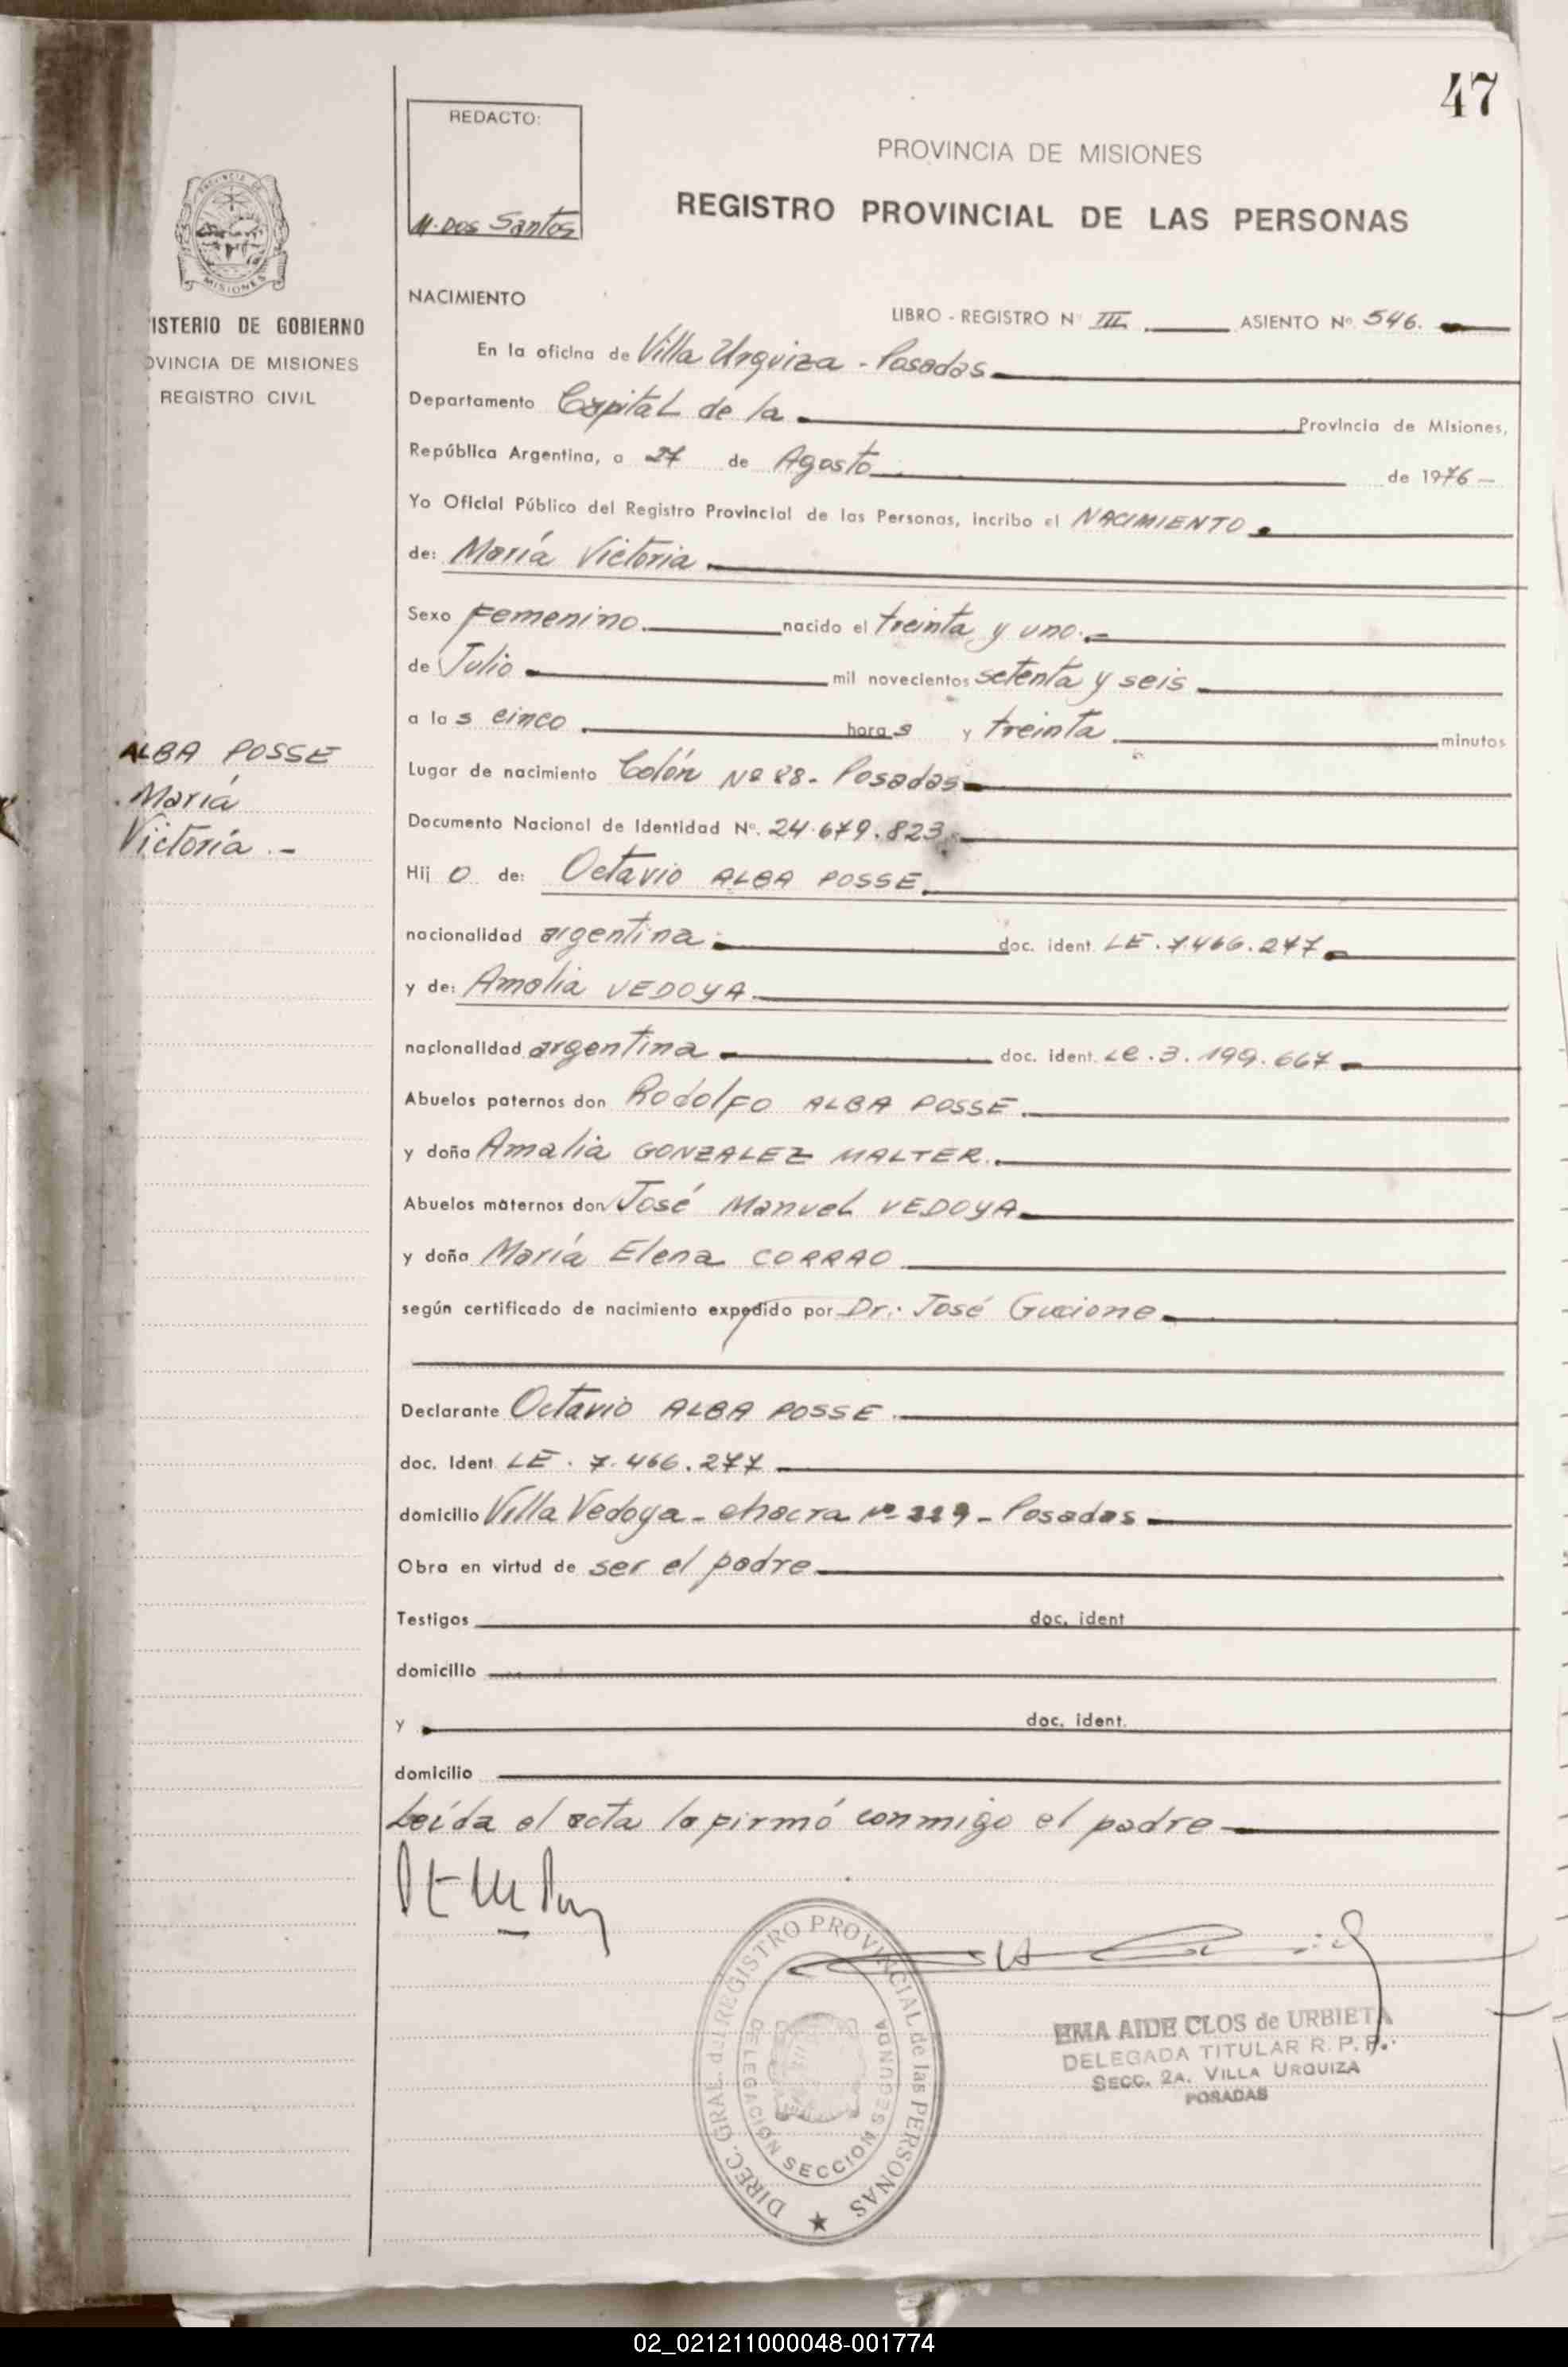 47
REDACTO:
M. Dos Santos
PROVINCIA DE MISIONES
REGISTRO PROVINCIAL DE LAS PERSONAS
PROVINCIA DE
MISIONES
ISTERIO DE GOBIERNO
OVINCIA DE MISIONES
REGISTRO CIVIL
NACIMIENTO
LIBRO - REGISTRO Nº III. ASIENTO Nº. 546.
En la oficina de Villa Urquiza - Posadas
Departamento Capital de la Provincia de Misiones,
República Argentina, a 27 de Agosto de 1976 -
Yo Oficial Público del Registro Provincial de las Personas, incribo el NACIMIENTO
de: María Victoria
Sexo Femenino. nacido el treinta y uno.-
de Julio mil novecientos setenta y seis
a las cinco horas y treinta minutos
ALBA POSSE
María
Victoria.-
Lugar de nacimiento Colón Nº 88- Posadas
Documento Nacional de Identidad Nº. 24.679.823.
Hijo de: Octavio ALBA POSSE.
nacionalidad argentina doc. ident. LE. 7.466.277
y de: Amalia VEDOYA
nacionalidad argentina doc. ident. LE. 3.199.667
Abuelos paternos don Rodolfo ALBA POSSE.
y doña Amalia GONZALEZ MALTER.
Abuelos maternos don José Manuel VEDOYA
y doña María Elena CORRAO
según certificado de nacimiento expedido por Dr.: José Guccione
Declarante Octavio ALBA POSSE
doc. Ident. LE. 7.466.277
domicilio Villa Vedoya - chacra Nº 229 - Posadas
Obra en virtud de ser el padre
Testigos doc. ident
domicilio
y doc. ident.
domicilio
Leída el acta la firmó conmigo el padre
DIREC. GRAL. del REGISTRO PROVINCIAL de las PERSONAS
DELEGACIÓN SECCION SEGUNDA
EMA AIDE CLOS de URBIETA
DELEGADA TITULAR R. P. P.
SECC. 2A. VILLA URQUIZA
POSADAS
02_021211000048-001774